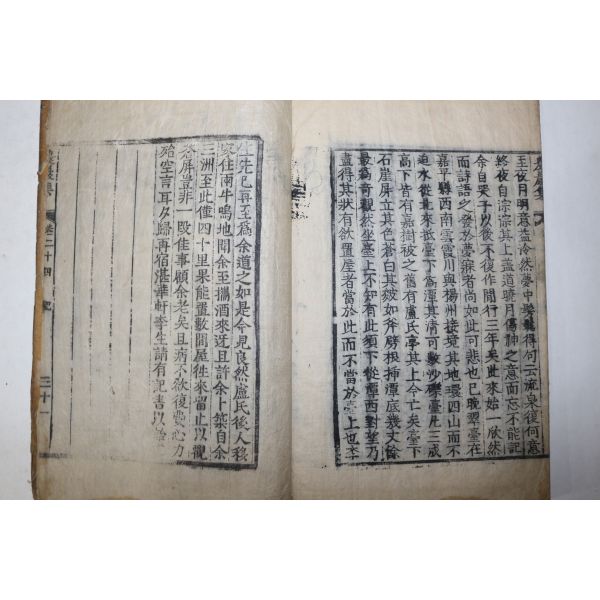 至夜月明意益泠然夢中
得句云流泉復何意
終夜自淙淙其上盖道曉月傷神之意而忘不能記
余自哭子以後不復作閒行三年矣此來始一欣然
而詩語之發於夢寐者尚如此可悲也已晩翠臺在
嘉平縣西南雲霞川與楊州接境其地環四山而不
迫水從北來抵臺下爲潭其淸可數沙礫臺凡三成
高下皆有嘉樹被之舊有盧氏亭其上今亡矣臺下
石崖屏立其色蒼白其皴如斧劈根揷潭底幾丈餘
最爲奇觀然坐臺上不知有此須下從潭西對望乃
盡得其狀有欲置屋者當於此而不當於臺上也李
生先已再至爲余道之如是今見良然盧氏後人移
家住南牛鳴地聞余至攜酒來迓且許余卜築自余
三洲至此僅四十里果能置數間屋徃來留止以觀
蒼屏豈非一段佳事顧余老矣且病不欲復費心力
殆空言耳夕歸再宿湛華軒李生請有記書以
卷二十四
記
三十一